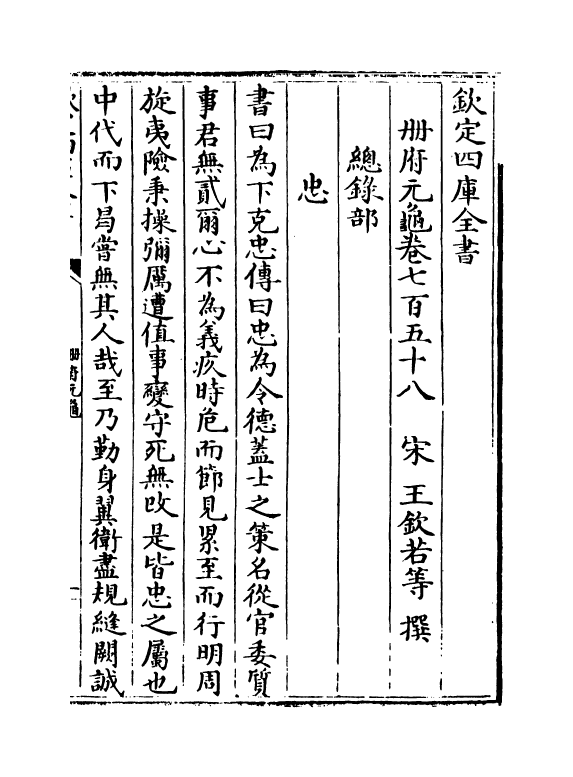 欽定四庫全書
冊府元龜卷七百五十八　宋　王欽若等　撰
總錄部
忠
書曰為下克忠傳曰忠為令德蓋士之策名從官委質
事君無貳爾心不為義疚時危而節見累至而行明周
旋夷險秉操彌厲遭值事變守死無改是皆忠之屬也
中代而下曷嘗無其人哉至乃勤身翼衛盡規縫闕誠
冊府元龜
一